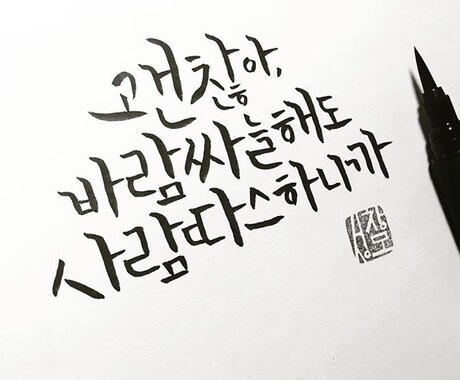 괜찮아,
바람싸늘해도
사람따스하니까